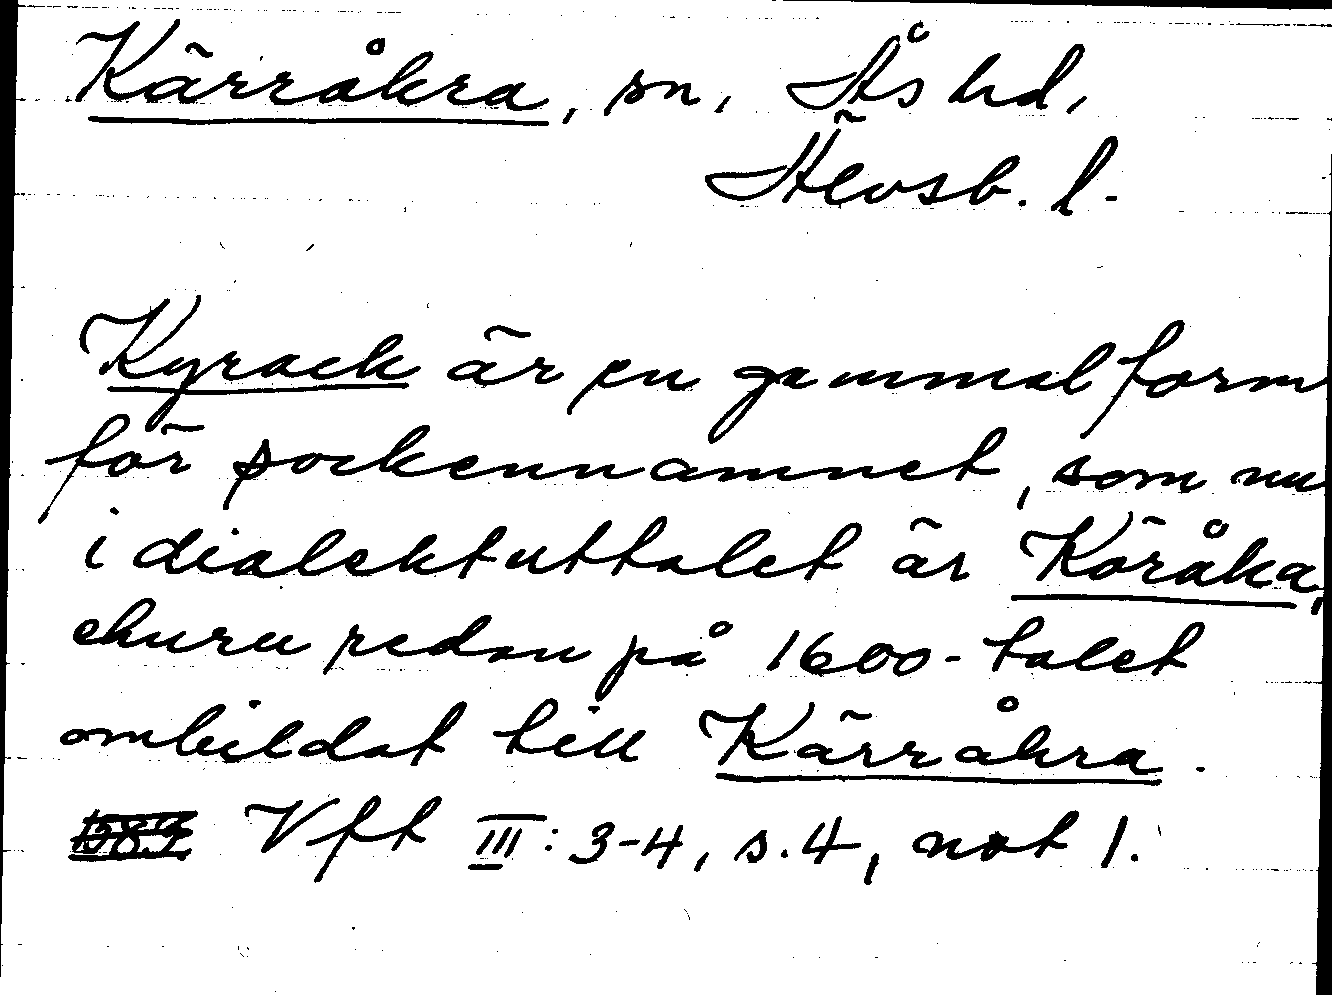 Kärråkra, sn, Ås hd,
Älvsb. l.
Kyrack är en gammal form
för sockennamnet, som nu
i dialektuttalet är Köråka,
ehuru redan på 1600-talet
ombildat till Kärråkra.
Vft III: 3-4, s. 4, not 1.